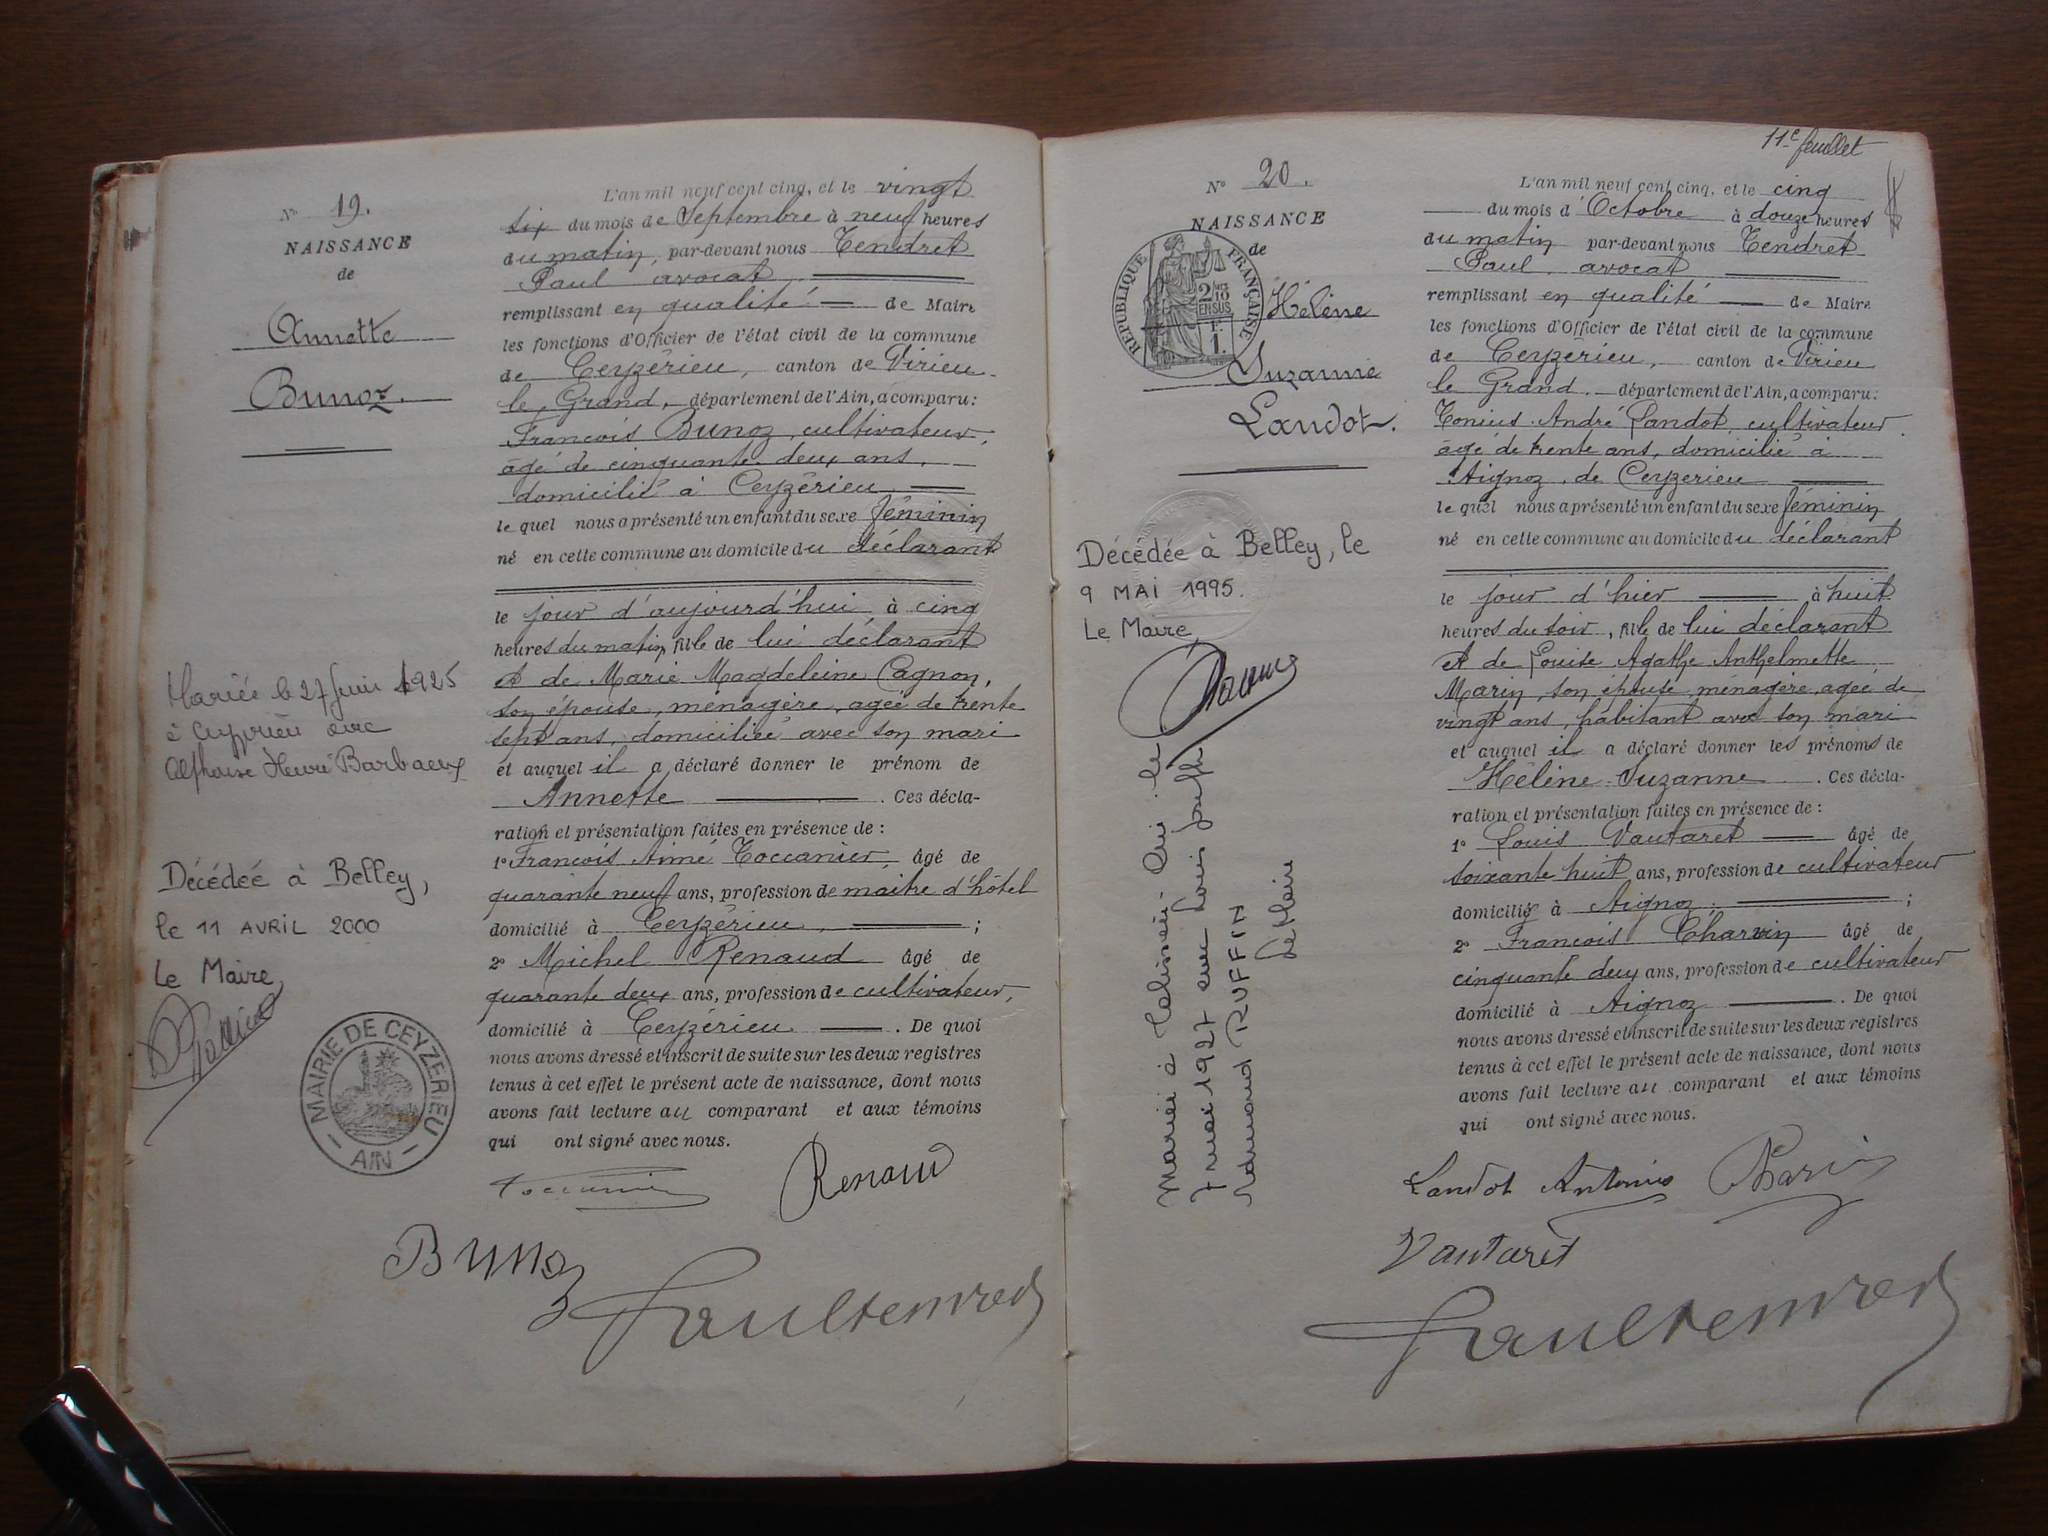 Nº 19.
NAISSANCE
de
Annette
Bunoz.
Mariée le 27 Juin 1925
à Ceyzérieu avec
Alphonse Henri Barbaeux
Décédée à Belley,
le 11 AVRIL 2000
Le Maire,
MAIRIE DE CEYZERIEU
- AIN -
L'an mil neuf cent cinq, et le vingt
six du mois de Septembre à neuf heures
du matin, par-devant nous Tendret
Paul avocat
remplissant en qualité de Maire
les fonctions d'Officier de l'état civil de la commune
de Ceyzérieu, canton de Virieu
le Grand, département de l'Ain, a comparu:
François Bunoz, cultivateur,
âgé de cinquante deux ans,
domicilié à Ceyzérieu
le quel nous a présenté un enfant du sexe féminin
né en cette commune au domicile du déclarant
le jour d'aujourd'hui à cinq
heures du matin, fille de lui déclarant
et de Marie Magdeleine Cagnon,
son épouse, ménagère, agée de trente
sept ans, domiciliée avec son mari
et auquel il a déclaré donner le prénom de
Annette. Ces décla-
ration et présentation faites en présence de :
1º François Aimé Toccanier, âgé de
quarante neuf ans, profession de maitre d'hôtel
domicilié à Ceyzérieu, ;
2º Michel Renaud âgé de
quarante deux ans, profession de cultivateur,
domicilié à Ceyzérieu. De quoi
nous avons dressé et inscrit de suite sur les deux registres
tenus à cet effet le présent acte de naissance, dont nous
avons fait lecture au comparant et aux témoins
qui ont signé avec nous.
Toccanier Renaud
Bunoz Paul Tendret
11e feuillet
Nº 20.
NAISSANCE
de
RÉPUBLIQUE FRANÇAISE
2/10 EN SUS
1 F.
Hélène
Suzanne
Landot.
Décédée à Belley, le
9 MAI 1995.
Le Maire,
Mariée à
7 mai 1927 avec Louis Joseph
Edmond RUFFIN
L'an mil neuf cent cinq, et le cinq
du mois d'Octobre à douze heures
du matin par-devant nous Tendret
Paul, avocat
remplissant en qualité de Maire
les fonctions d'Officier de l'état civil de la commune
de Ceyzérieu, canton de Virieu
le Grand. département de l'Ain, a comparu:
Tonius André Landot, cultivateur
âgé de trente ans, domicilié à
Aignoz, de Ceyzérieu
le quel nous a présenté un enfant du sexe féminin
né en cette commune au domicile du déclarant
le jour d'hier à huit
heures du soir, fille de lui déclarant
et de Louise Agathe Anthelmette
Marin, son épouse, ménagère, agée de
vingt ans, habitant avec son mari
et auquel il a déclaré donner les prénoms de
Hélène Suzanne. Ces décla-
ration et présentation faites en présence de :
1º Louis Vautaret âgé de
soixante huit ans, profession de cultivateur
domicilié à Aignoz. ;
2º François Charvin âgé de
cinquante deux ans, profession de cultivateur
domicilié à Aignoz. De quoi
nous avons dressé et inscrit de suite sur les deux registres
tenus à cet effet le présent acte de naissance, dont nous
avons fait lecture au comparant et aux témoins
qui ont signé avec nous.
Landot Antonius Charvin
Vautaret
Paul Tendret